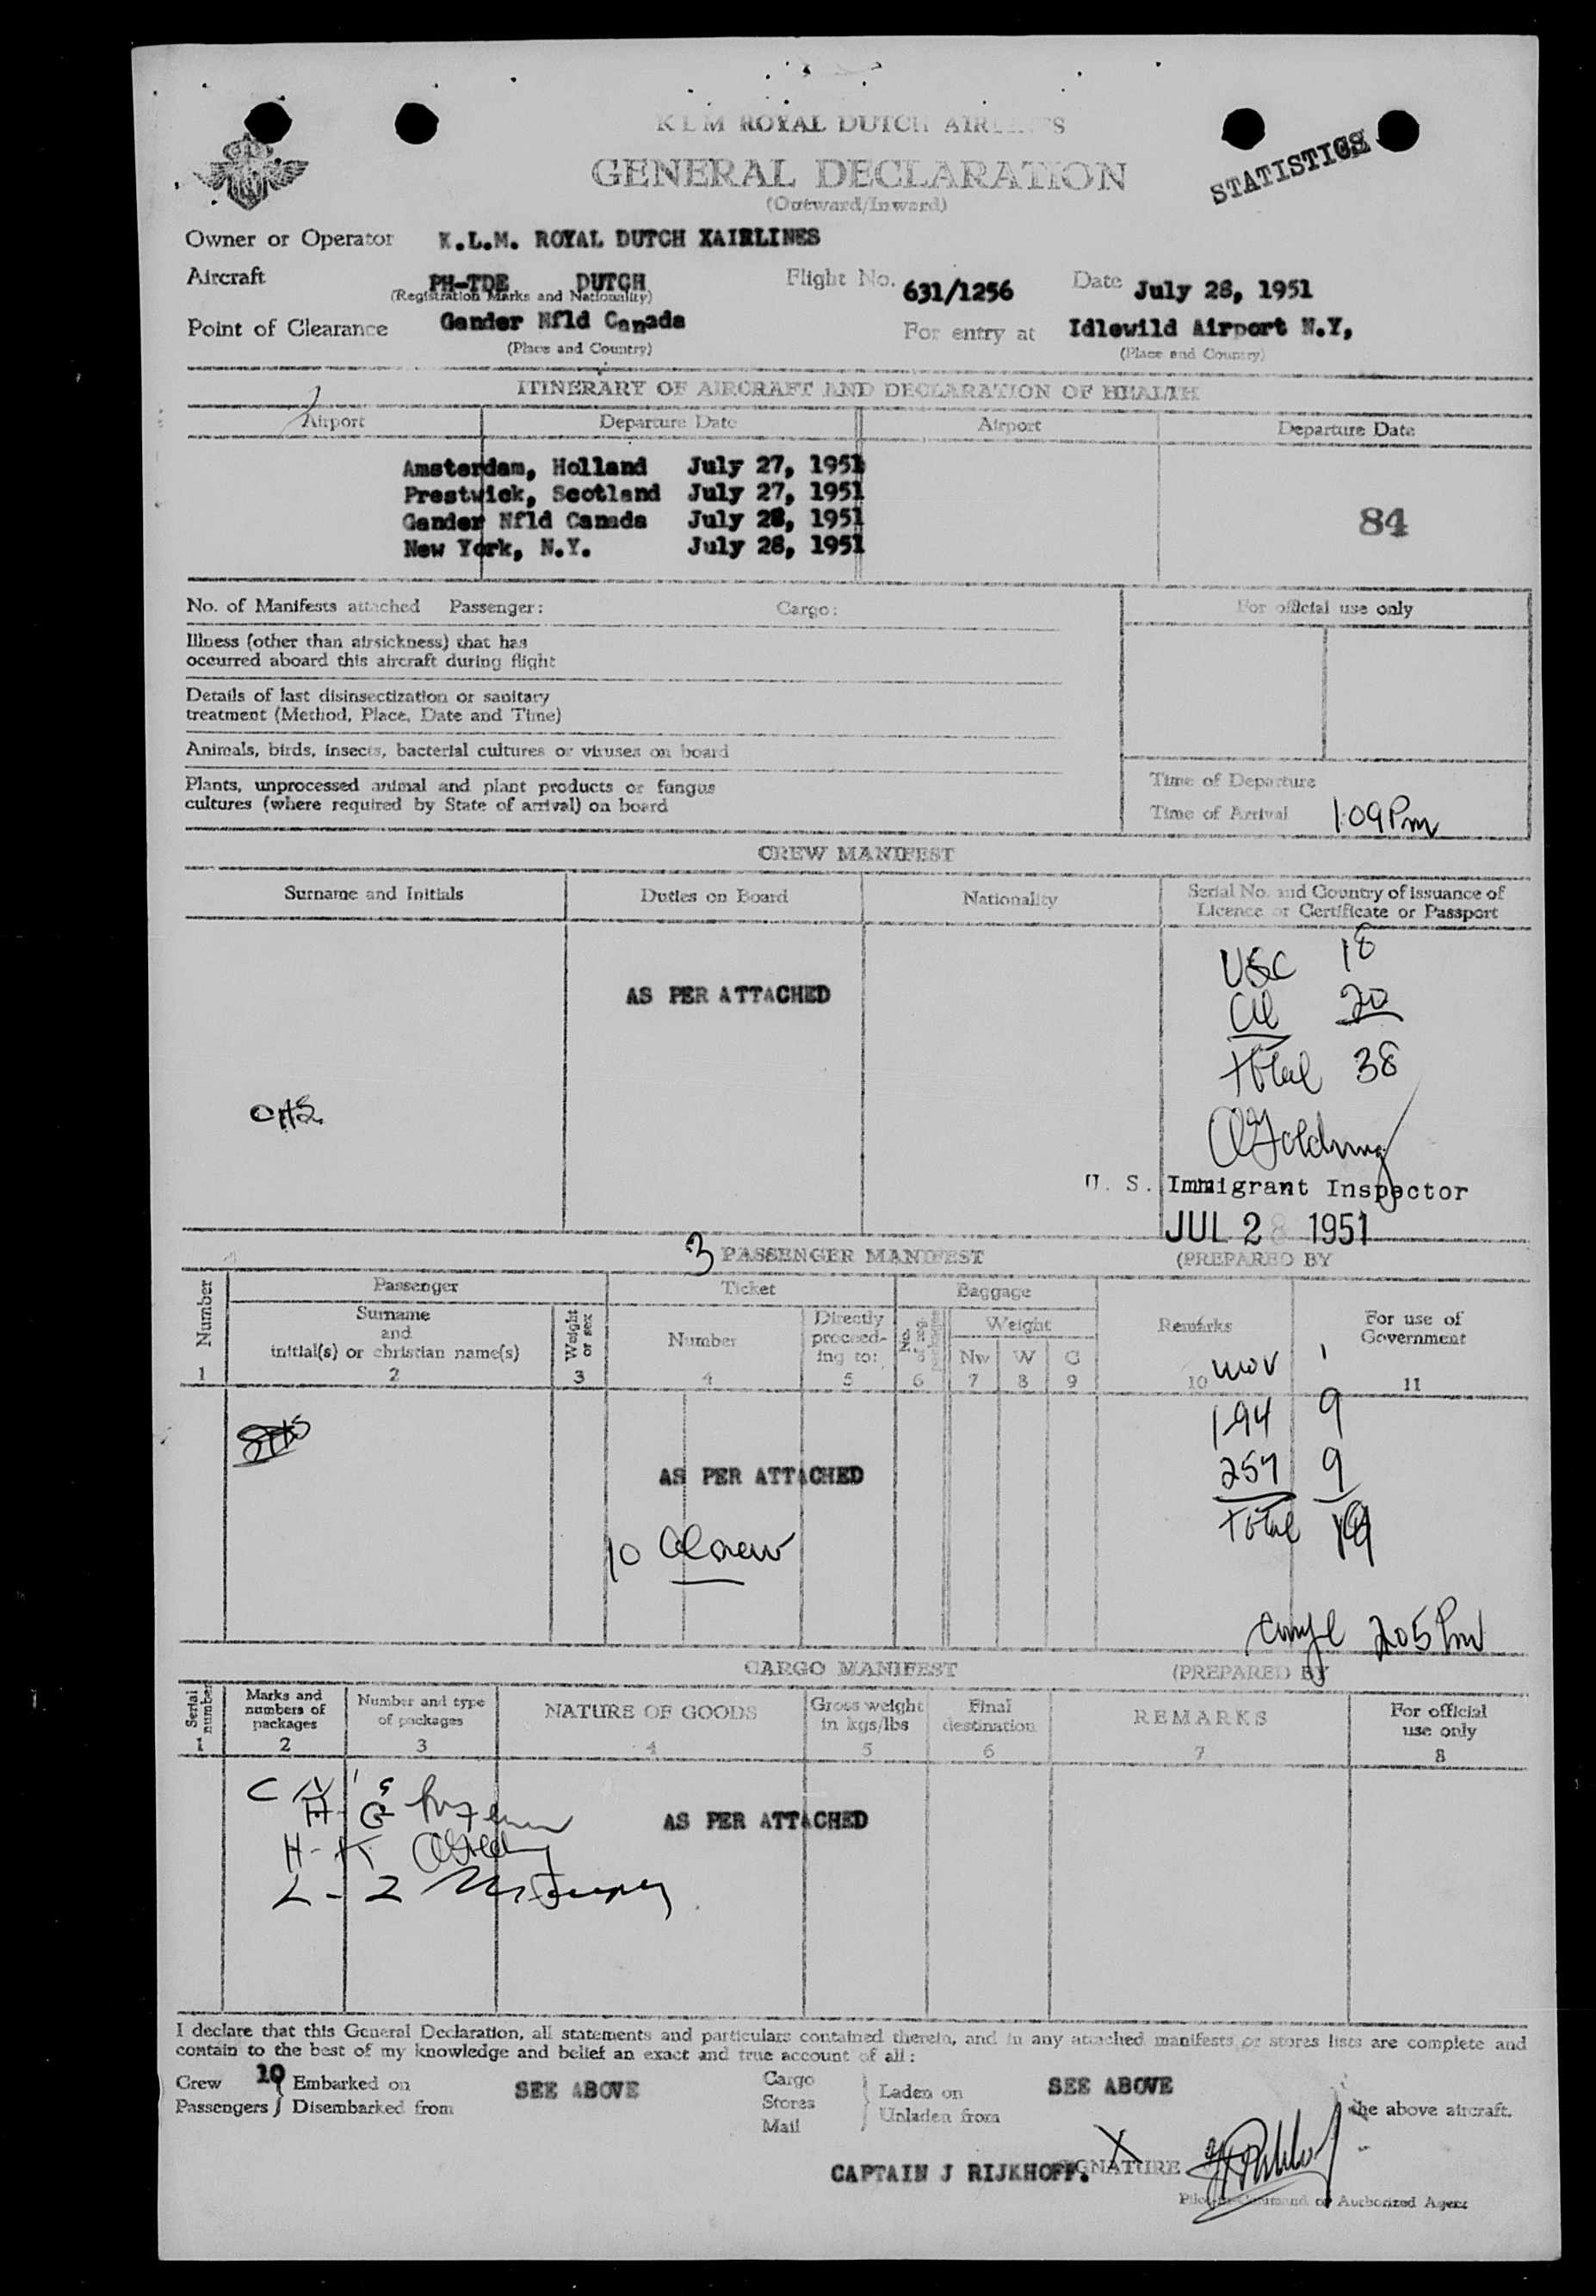 KLM ROYAL DUTCH AIRLINES
GENERAL DECLARATION
(Outward/Inward)
STATISTICS
Owner or Operator K.L.M. ROYAL DUTCH XAIRLINES
Aircraft PH-TDE DUTCH Flight No. 631/1256 Date July 28, 1951
(Registration Marks and Nationality)
Point of Clearance Gander Nfld Canada For entry at Idlewild Airport N.Y,
(Place and Country) (Place and Country)
ITINERARY OF AIRCRAFT AND DECLARATION OF HEALTH
Airport Departure Date Airport Departure Date
Amsterdam, Holland July 27, 1951
Prestwick, Scotland July 27, 1951
Gander Nfld Canada July 28, 1951
New York, N.Y. July 28, 1951
84
No. of Manifests attached Passenger: Cargo: For official use only
Illness (other than airsickness) that has
occurred aboard this aircraft during flight
Details of last disinsectization or sanitary
treatment (Method, Place, Date and Time)
Animals, birds, insects, bacterial cultures or viruses on board
Plants, unprocessed animal and plant products or fungus
cultures (where required by State of arrival) on board
Time of Departure
Time of Arrival 1:09 Pm
CREW MANIFEST
Surname and Initials Duties on Board Nationality Serial No. and Country of issuance of
Licence or Certificate or Passport
USC 18
AS PER ATTACHED
20
Total 38
U. S. Immigrant Inspector
JUL 28 1951
3 PASSENGER MANIFEST (PREPARED BY
Number Passenger Ticket Baggage
Surname
and
initial(s) or christian name(s)
Weight or sex
Number
Directly
proceed-
ing to:
No. of reg. packages
Weight
Nw W G
Remarks
For use of
Government
1 2 3 4 5 6 7 8 9 10 11
194 9
257 9
AS PER ATTACHED
Total
10
205 Pm
CARGO MANIFEST (PREPARED BY
Serial number
Marks and
numbers of
packages
Number and type
of packages
NATURE OF GOODS
Gross weight
in kgs/lbs
Final
destination
REMARKS
For official
use only
1 2 3 4 5 6 7 8
AS PER ATTACHED
H - K
L - Z
I declare that this General Declaration, all statements and particulars contained therein, and in any attached manifests or stores lists are complete and
contain to the best of my knowledge and belief an exact and true account of all:
Crew 10 Embarked on SEE ABOVE Cargo Laden on SEE ABOVE
Passengers Disembarked from Stores Unladen from the above aircraft.
Mail
CAPTAIN J RIJKHOFF. SIGNATURE X
Pilot-in-Command or Authorized Agent